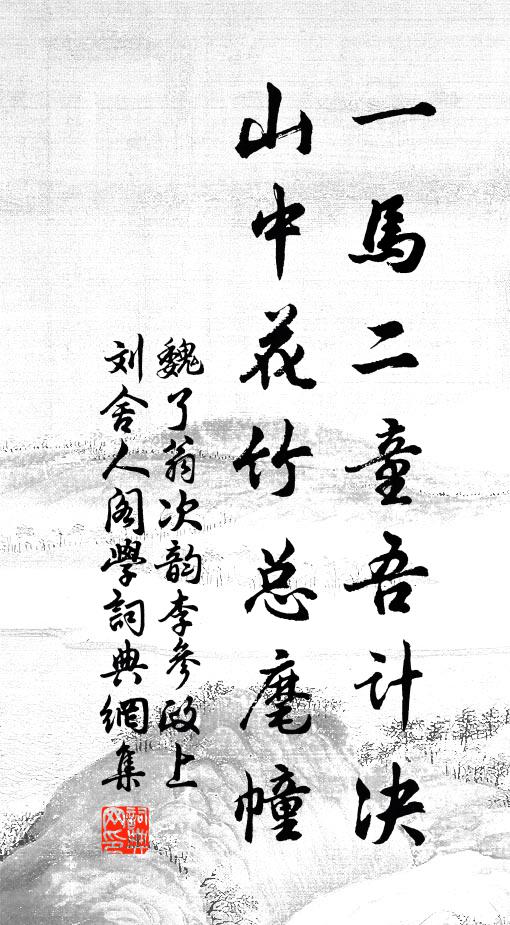 一馬二童吾计决
山中花竹总麾幢
魏了翁次韵李參政上
刘舍人阁學詞典網集